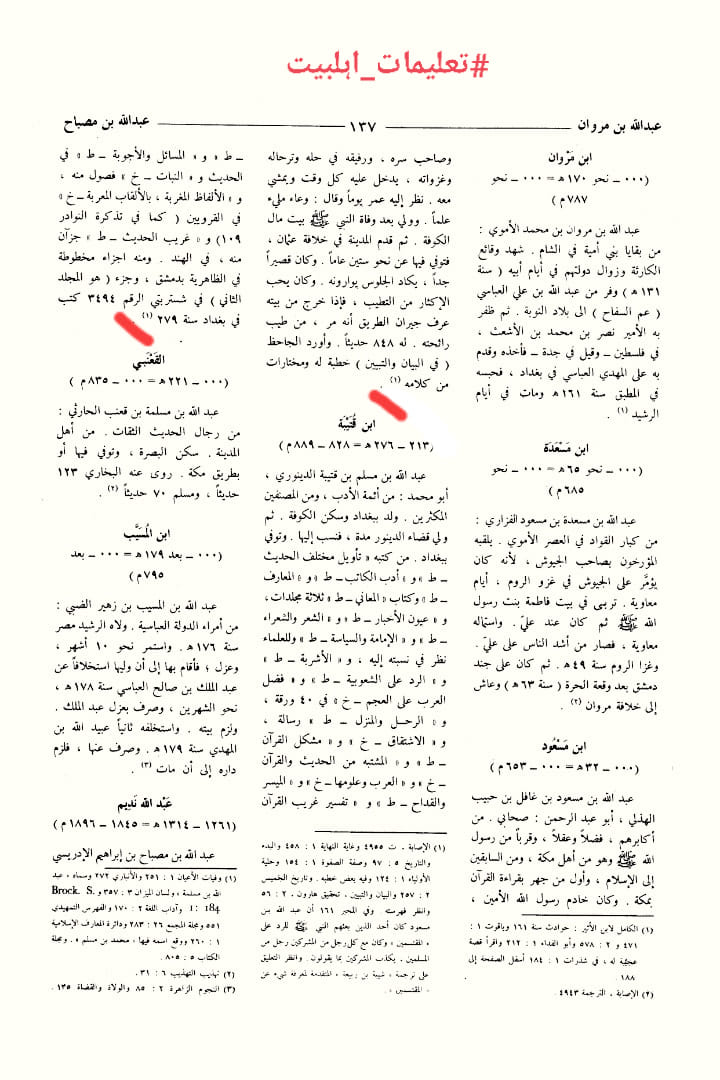 #تعليمات_اہلبیت
عبدالله بن مروان
١٣٧
عبدالله بن مصباح
ابن مَرْوان
(٠٠٠ ــ نحو ١٧٠ ھ = ٠٠٠ ــ نحو
٧٨٧ م)
عبد الله بن مروان بن محمد الأموي :
من بقايا بني أمية في الشام . شهد وقائع
الكارثة وزوال دولتهم في أيام أبيه ( سنة
١٣١ ھ ) وفر من عبد الله بن علي العباسي
( عم السفاح ) الى بلاد النوبة . ثم ظفر
به الأمير نصر بن محمد بن الأشعث ،
في فلسطين ــ وقيل في جدة ــ فأخذه وقدم
به على المهدي العباسي في بغداد ، فحبسه
في المطبق سنة ١٦١ ھ ومات في أيام
الرشيد (١) .
ابن مَسْعَدَة
(٠٠٠ ــ نحو ٦٥ ھ = ٠٠٠ ــ نحو
٦٨٥ م)
عبد الله بن مسعدة بن مسعود الفزاري :
من كبار القواد في العصر الأموي . يلقبه
المؤرخون بصاحب الجيوش ، لأنه كان
يؤمَّر على الجيوش في غزو الروم ، أيام
معاوية . تربى في بيت فاطمة بنت رسول
الله ﷺ ثم كان عند عليّ . واستماله
معاوية ، فصار من أشد الناس على عليّ .
وغزا الروم سنة ٤٩ ھ . ثم كان على جند
دمشق بعد وقعة الحرة ( سنة ٦٣ ھ ) وعاش
إلى خلافة مروان (٢) .
ابن مَسْعُود
(٠٠٠ ــ ٣٢ ھ = ٠٠٠ ــ ٦٥٣ م)
عبد الله بن مسعود بن غافل بن حبيب
الهذلي ، أبو عبد الرحمن : صحابي . من
أكابرهم ، فضلاً وعقلاً ، وقرباً من رسول
الله ﷺ وهو من أهل مكة ، ومن السابقين
إلى الإسلام ، وأول من جهر بقراءة القرآن
بمكة . وكان خادم رسول الله الأمين ،
(١) الكامل لابن الأثير : حوادث سنة ١٦١ وياقوت ١ :
٤٧١ و ٢ : ٥٧٨ وأبو الفداء ١ : ٢١٢ واقرأ قصة
عجيبة له ، في شذرات ١ : ١٨٤ أسفل الصفحة إلى
١٨٨ .
(٢) الإصابة ، الترجمة ٤٩٤٣ .
وصاحب سره ، ورفيقه في حله وترحاله
وغزواته ، يدخل عليه كل وقت ويمشي
معه . نظر إليه عمر يوماً وقال : وعاء مليء
علماً . وولي بعد وفاة النبي ﷺ بيت مال
الكوفة . ثم قدم المدينة في خلافة عثمان ،
فتوفي فيها عن نحو ستين عاماً . وكان قصيراً
جداً ، يكاد الجلوس يوارونه . وكان يحب
الإكثار من التطيب ، فإذا خرج من بيته
عرف جيران الطريق أنه مر ، من طيب
رائحته . له ٨٤٨ حديثاً . وأورد الجاحظ
( في البيان والتبيين ) خطبة له ومختارات
من كلامه (١) .
ابن قُتَيْبَة
(٢١٣ ــ ٢٧٦ ھ = ٨٢٨ ــ ٨٨٩ م)
عبد الله بن مسلم بن قتيبة الدينوري ،
أبو محمد : من أئمة الأدب ، ومن المصنفين
المكثرين . ولد ببغداد وسكن الكوفة . ثم
ولي قضاء الدينور مدة ، فنسب إليها . وتوفي
ببغداد . من كتبه « تأويل مختلف الحديث
ــ ط » و « أدب الكاتب ــ ط » و « المعارف
ــ ط » وكتاب « المعاني ــ ط » ثلاثة مجلدات ،
و « عيون الأخبار ــ ط » و « الشعر والشعراء
ــ ط » و « الإمامة والسياسة ــ ط » وللعلماء
نظر في نسبته إليه ، و « الأشربة ــ ط »
و « الرد على الشعوبية ــ ط » و « فضل
العرب على العجم ــ خ » في ٤٠ ورقة ،
و « الرحل والمنزل ــ ط » رسالة ،
و « الاشتقاق ــ خ » و « مشكل القرآن
ــ ط » و « المشتبه من الحديث والقرآن
ــ خ » و « العرب وعلومها ــ خ » و « الميسر
والقداح ــ ط » و « تفسير غريب القرآن
(١) الإصابة ، ت ٤٩٥٥ وغاية النهاية ١ : ٤٥٨ والبدء
والتاريخ ٥ : ٩٧ وصفة الصفوة ١ : ١٥٤ وحلية
الأولياء ١ : ١٢٤ وفيه بعض خطبه . وتاريخ الخميس
٢ : ٢٥٧ والبيان والتبيين ، تحقيق هارون ، ٢ : ٥٦
وانظر فهرسته . وفي المحبر ١٦١ أن عبد الله بن
مسعود كان أحد الذين بعثهم النبي ﷺ للرد على
« المقتسمين » وكان مع كل رجل من المشركين رجل من
المسلمين . يكذب المشركين بما يقولون . وانظر التعليق
على ترجمة « شيبة بن ربيعة » المتقدمة لمعرفة شيء عن
« المقتسمين » .
ــ ط » و « المسائل والأجوبة ــ ط » في
الحديث و « النبات ــ خ » فصول منه ،
و « الألفاظ المغربة ، بالألقاب المعربة ــ خ »
في القرويين ( كما في تذكرة النوادر
١٠٩) و « غريب الحديث ــ ط » جزآن
منه ، في الهند . ومنه اجزاء مخطوطة
في الظاهرية بدمشق ، وجزء ( هو المجلد
الثاني ) في شستربتي الرقم ٣٤٩٤ كتب
في بغداد سنة ٢٧٩ (١)
القَعْنَبي
(٠٠٠ ــ ٢٢١ ھ = ٠٠٠ ــ ٨٣٥ م)
عبد الله بن مسلمة بن قعنب الحارثي :
من رجال الحديث الثقات . من أهل
المدينة . سكن البصرة ، وتوفي فيها أو
بطريق مكة . روى عنه البخاري ١٢٣
حديثاً ، ومسلم ٧٠ حديثاً (٢) .
ابن المُسَيَّب
(٠٠٠ ــ بعد ١٧٩ ھ = ٠٠٠ ــ بعد
٧٩٥ م)
عبد الله بن المسيب بن زهير الضبي :
من أمراء الدولة العباسية . ولاه الرشيد مصر
سنة ١٧٦ ھ . واستمر نحو ١٠ أشهر ،
وعزل ؛ فأقام بها إلى أن وليها استخلافاً عن
عبد الملك بن صالح العباسي سنة ١٧٨ ھ ،
نحو الشهرين ، وصرف بعزل عبد الملك .
ولزم بيته . واستخلفه ثانياً عبيد الله بن
المهدي سنة ١٧٩ ھ . وصرف عنها ، فلزم
داره إلى أن مات (٣) .
عَبْد الله نَديم
(١٢٦١ ــ ١٣١٤ ھ = ١٨٤٥ ــ ١٨٩٦ م)
عبد الله بن مصباح بن إبراهيم الإدريسي
(١) وفيات الأعيان ١ : ٢٥١ والأنباري ٢٧٢ وسماه « عبد
الله بن مسلمة » ولسان الميزان ٣ : ٣٥٧ و Brock. S.
I : 184 وآداب اللغة ٢ : ١٧٠ والفهرس التمهيدي
٥٥١ ومجلة المجمع ٢٦ : ٢٨٣ ودائرة المعارف الإسلامية
١ : ٢٦٠ ووقع اسمه فيها « محمد بن مسلم » . ومجلة
الكتاب ٥ : ٨٠٥ .
(٢) تهذيب التهذيب ٦ : ٣١ .
(٣) النجوم الزاهرة ٢ : ٨٥ والولاة والقضاة ١٣٥ .